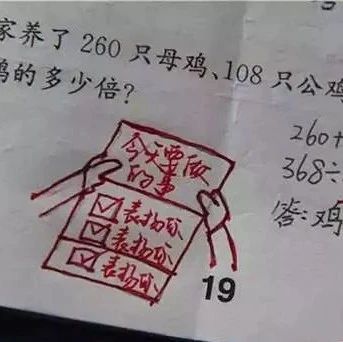 家养了 260 只母鸡、108 只公鸡
鸡的多少倍?
260+
368÷
答:鸡
今天要做
的事
表扬你
表扬你
表扬你
19